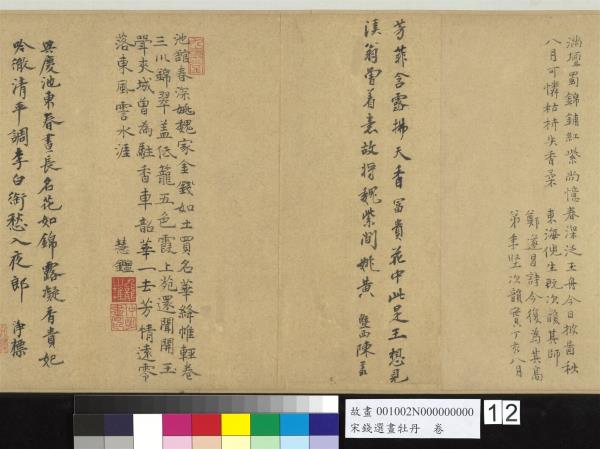 滿壇蜀錦鋪紅紫尚憶春深泛玉舟今日掀齒秋
八月可憐枯梗失香柔
東海倪生既次韻其師
鄭遂昌詩今復為其高
第季堅次韻實丁亥八月
芳菲含露拂天香富貴花中此是王想見
溪翁曾著意故將魏紫間姚黃
池館春深姚魏家金錢如土買名華絳帷輕卷
三川錦翠蓋低籠五色霞上苑還聞開玉
聲夾城曾為駐香車韶華一去芳情遠零
落東風雲水涯
慧鑑
興慶池東春晝長名花如錦露凝香貴妃
吟徹清平調李白銜愁入夜郎
淨標
故畫 001002N000000000
宋錢選畫牡丹 卷
12